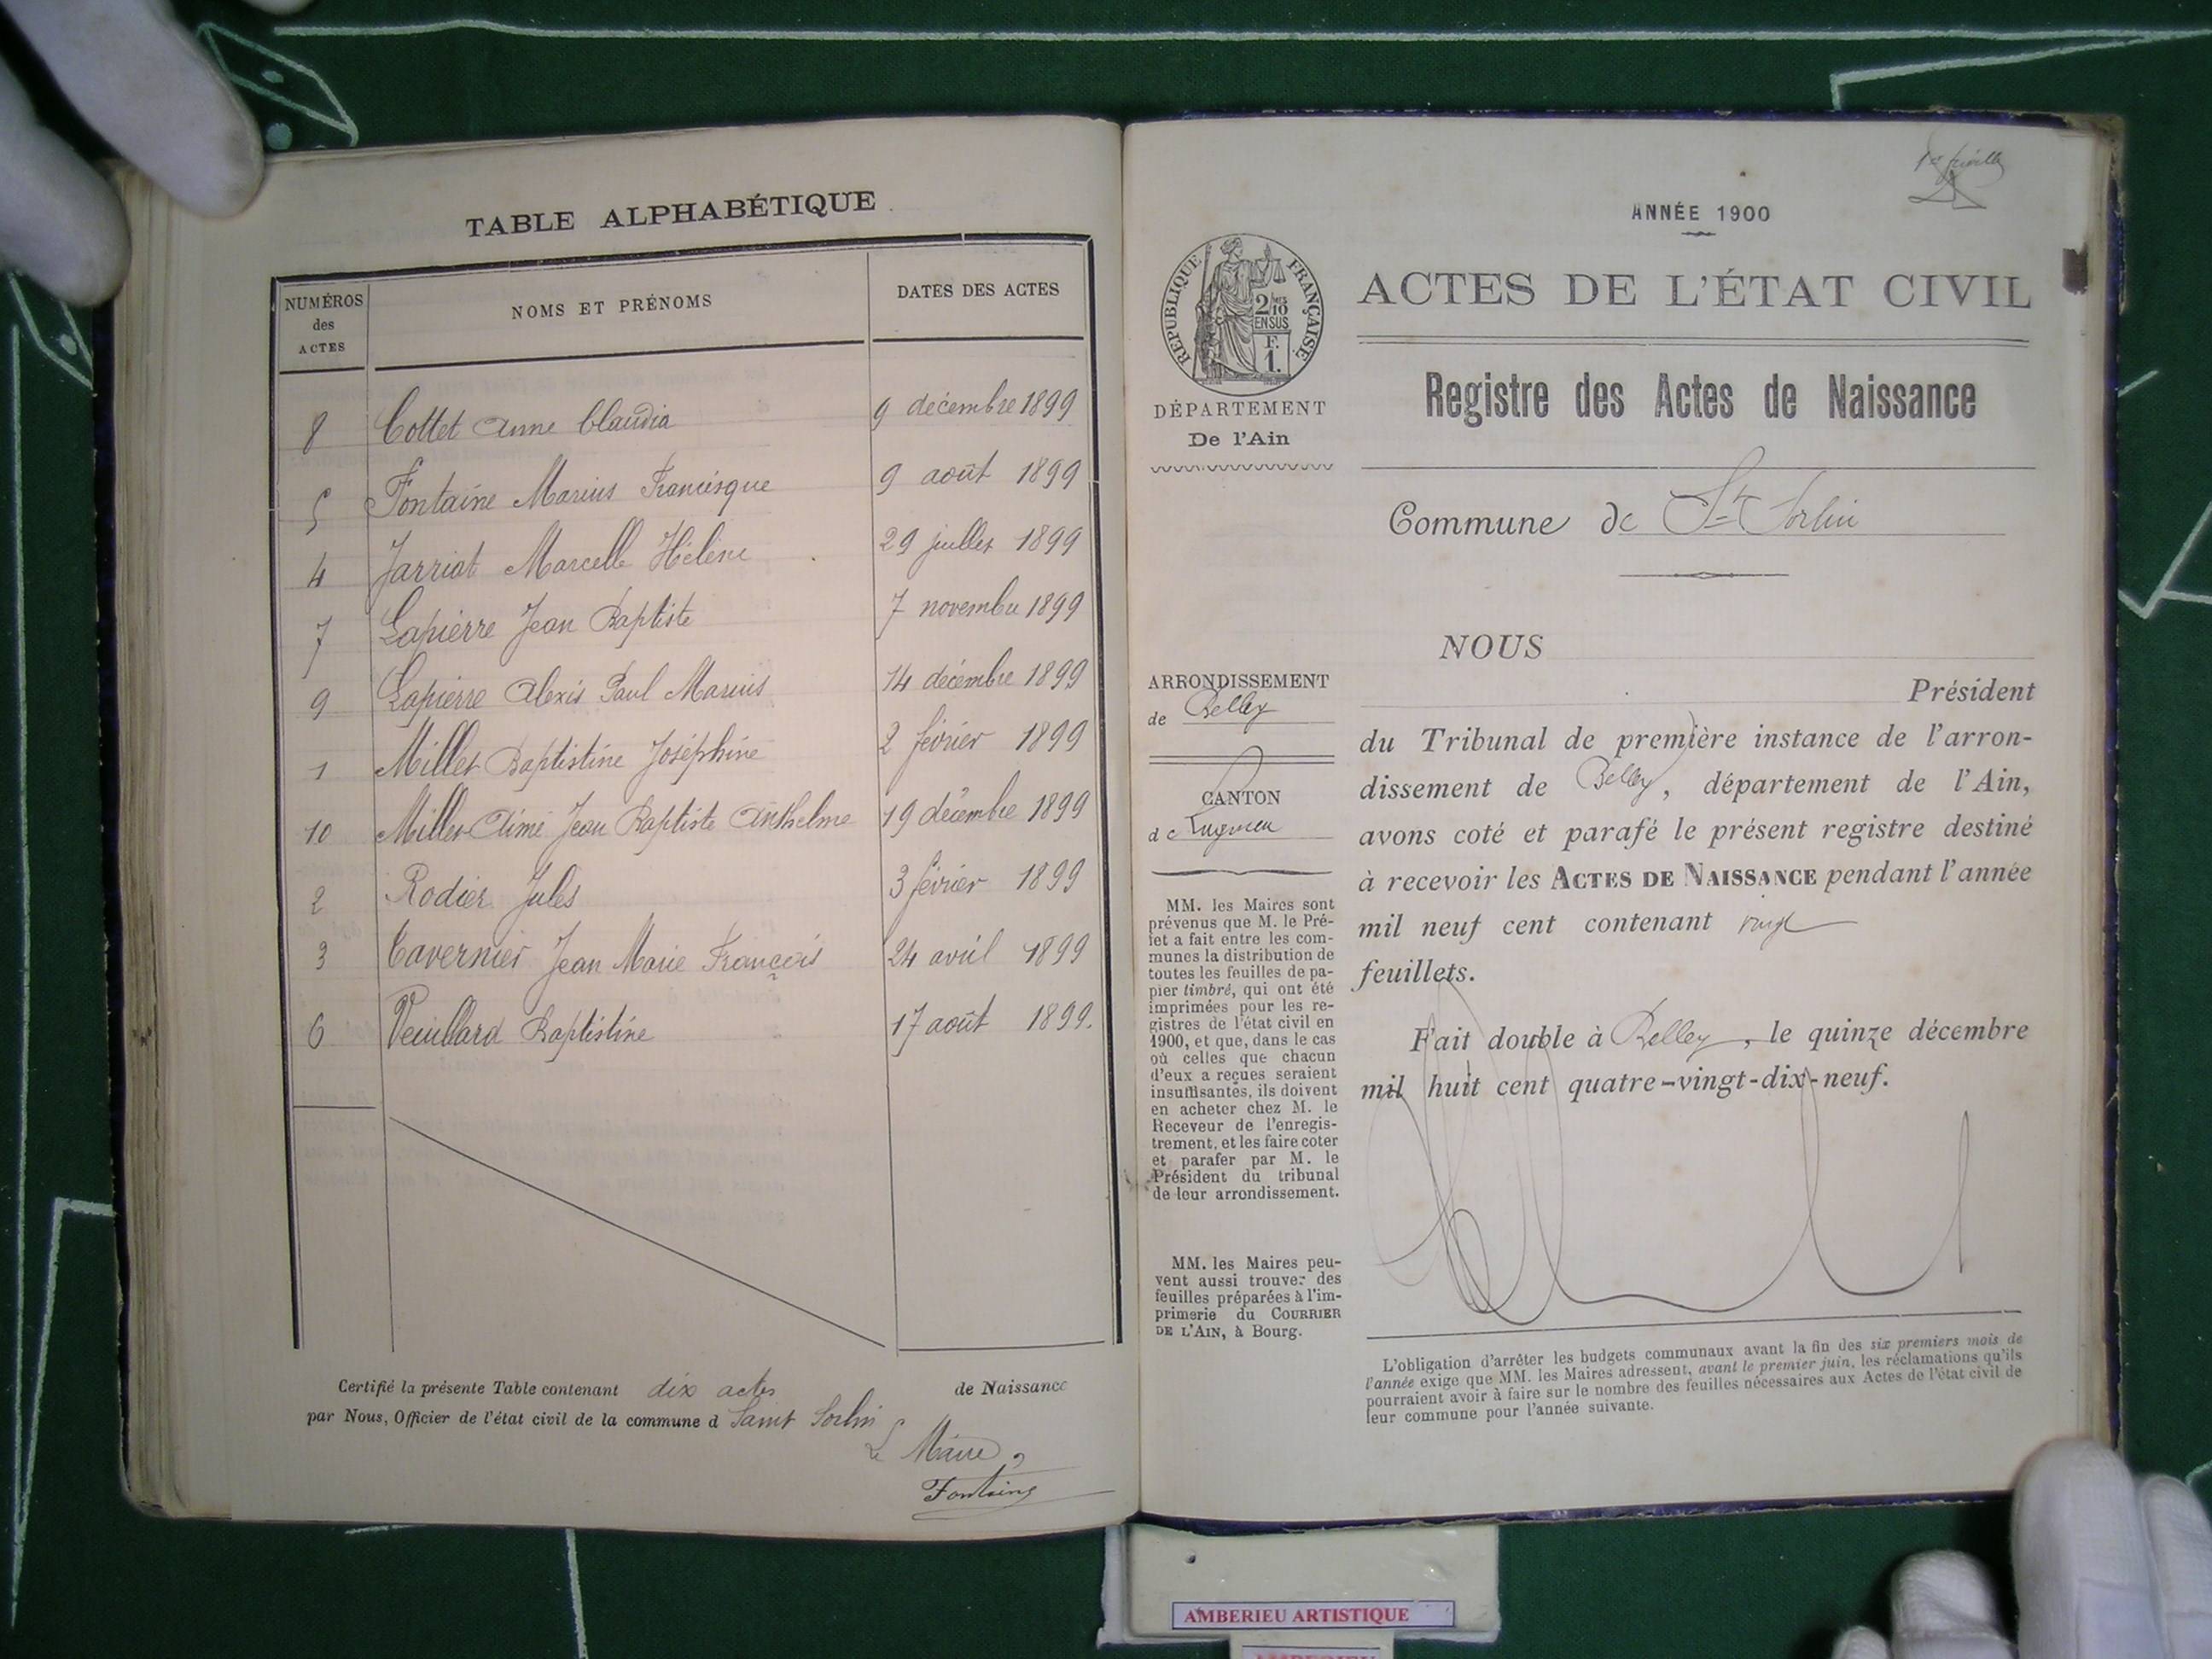 TABLE ALPHABÉTIQUE
NUMÉROS
des
ACTES
NOMS ET PRÉNOMS
DATES DES ACTES
8 Cottet Anne Claudia 9 décembre 1899
5 Fontaine Marius Francisque 9 août 1899
4 Jarriot Marcelle Hélène 29 juillet 1899
7 Lapierre Jean Baptiste 7 novembre 1899
9 Lapierre Alexis Paul Marius 14 décembre 1899
1 Millet Baptistine Joséphine 2 février 1899
10 Millet Aimé Jean Baptiste Anthelme 19 décembre 1899
2 Rodier Jules 3 février 1899
3 Tavernier Jean Marie François 24 avril 1899
6 Veuillard Baptistine 17 août 1899.
Certifié la présente Table contenant dix actes de Naissance
par Nous, Officier de l'état civil de la commune d Saint Sorlin
Le Maire,
Fontaine
ANNÉE 1900
RÉPUBLIQUE FRANÇAISE
2/10
EN SUS
F.
1.
ACTES DE L'ÉTAT CIVIL
Registre des Actes de Naissance
DÉPARTEMENT
De l'Ain
Commune de St Sorlin
NOUS
Président
du Tribunal de première instance de l'arron-
dissement de Belley, département de l'Ain,
avons coté et parafé le présent registre destiné
à recevoir les ACTES DE NAISSANCE pendant l'année
mil neuf cent contenant vingt
feuillets.
Fait double à Belley, le quinze décembre
mil huit cent quatre-vingt-dix-neuf.
ARRONDISSEMENT
de Belley
CANTON
de Lagnieu
MM. les Maires sont
prévenus que M. le Pré-
fet a fait entre les com-
munes la distribution de
toutes les feuilles de pa-
pier timbré, qui ont été
imprimées pour les re-
gistres de l'état civil en
1900, et que, dans le cas
où celles que chacun
d'eux a reçues seraient
insuffisantes, ils doivent
en acheter chez M. le
Receveur de l'enregis-
trement, et les faire coter
et parafer par M. le
Président du tribunal
de leur arrondissement.
MM. les Maires peu-
vent aussi trouver des
feuilles préparées à l'im-
primerie du COURRIER
DE L'AIN, à Bourg.
L'obligation d'arrêter les budgets communaux avant la fin des six premiers mois de
l'année exige que MM. les Maires adressent, avant le premier juin, les réclamations qu'ils
pourraient avoir à faire sur le nombre des feuilles nécessaires aux Actes de l'état civil de
leur commune pour l'année suivante.
AMBERIEU ARTISTIQUE